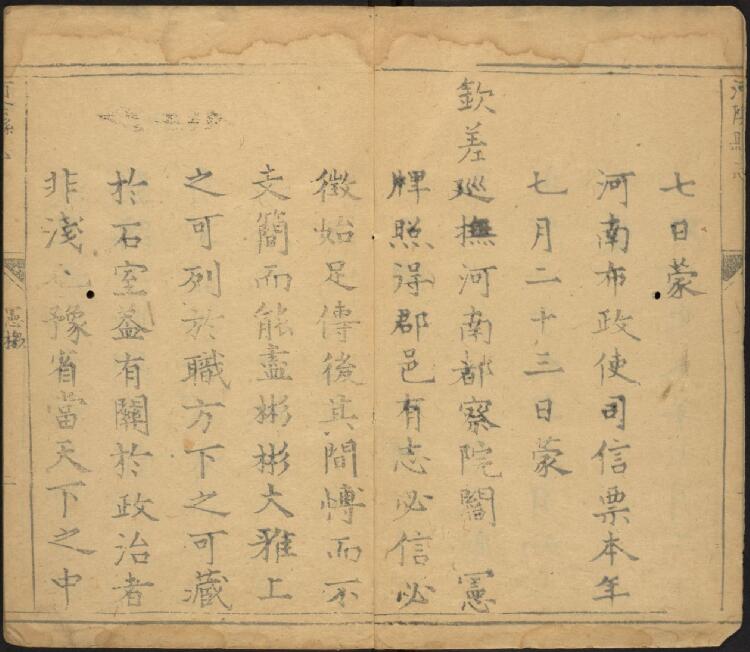 七日蒙
河南布政使司信票本年
七月二十三日蒙
欽差巡撫河南都察院閻 憲
牌照得郡邑有志必信必
徵始足傳後其間博而不
支簡而能盡彬彬大雅上
之可列於職方下之可藏
於石室蓋有關於政治者
非淺也豫省當天下之中
憲檄